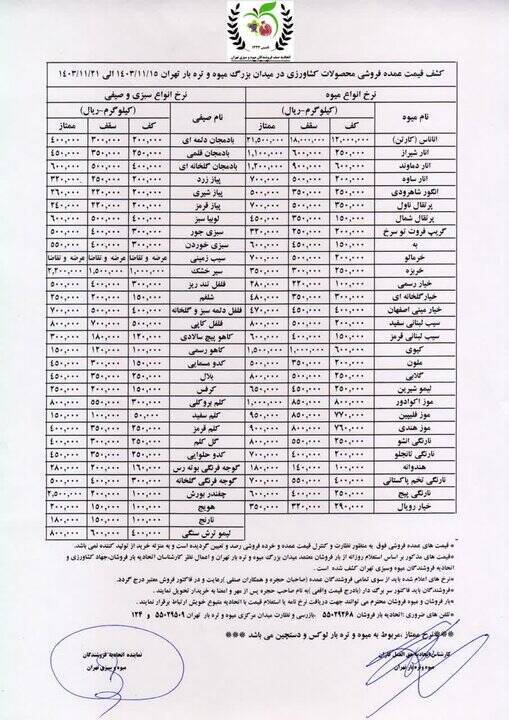 تاسیس ۱۳۲۳
اتحادیه صنف فروشندگان میوه و سبزی تهران
کشف قیمت عمده فروشی محصولات کشاورزی در میدان بزرگ میوه و تره بار تهران ۱۴۰۳/۱۱/۱۵ الی ۱۴۰۳/۱۱/۲۱
نرخ انواع میوه نرخ انواع سبزی و صیفی
نام میوه (کیلوگرم-ریال) نام صیفی (کیلوگرم-ریال)
کف سقف ممتاز کف سقف ممتاز
آناناس (کارتن) ۱۲,۰۰۰,۰۰۰ ۱۸,۰۰۰,۰۰۰ ۲۱,۵۰۰,۰۰۰ بادمجان دلمه ای ۲۰۰,۰۰۰ ۳۰۰,۰۰۰ ۴۰۰,۰۰۰
انار شیراز ۲۵۰,۰۰۰ ۶۰۰,۰۰۰ ۱,۱۰۰,۰۰۰ بادمجان قلمی ۲۵۰,۰۰۰ ۳۵۰,۰۰۰ ۴۵۰,۰۰۰
انار دماوند ۶۰۰,۰۰۰ ۹۰۰,۰۰۰ ۱,۲۰۰,۰۰۰ بادمجان گلخانه ای ۴۰۰,۰۰۰ ۵۰۰,۰۰۰ ۶۰۰,۰۰۰
انار ساوه ۲۰۰,۰۰۰ ۵۰۰,۰۰۰ ۷۰۰,۰۰۰ پیاز زرد ۲۰۰,۰۰۰ ۲۵۰,۰۰۰ ۳۲۰,۰۰۰
انگور شاهرودی ۲۵۰,۰۰۰ ۳۵۰,۰۰۰ ۵۰۰,۰۰۰ پیاز شیری ۲۰۰,۰۰۰ ۲۲۰,۰۰۰ ۲۶۰,۰۰۰
پرتقال ناول ۳۵۰,۰۰۰ ۵۰۰,۰۰۰ ۷۰۰,۰۰۰ پیاز قرمز ۲۰۰,۰۰۰ ۲۲۰,۰۰۰ ۲۴۰,۰۰۰
پرتقال شمال ۱۵۰,۰۰۰ ۳۵۰,۰۰۰ ۴۵۰,۰۰۰ لوبیا سبز ۴۰۰,۰۰۰ ۵۰۰,۰۰۰ ۶۰۰,۰۰۰
گریپ فروت تو سرخ ۲۰۰,۰۰۰ ۲۵۰,۰۰۰ ۳۲۰,۰۰۰ سبزی جور ۳۰۰,۰۰۰ ۴۰۰,۰۰۰ ۵۰۰,۰۰۰
به ۱۵۰,۰۰۰ ۴۵۰,۰۰۰ ۶۰۰,۰۰۰ سبزی خوردن ۳۰۰,۰۰۰ ۴۰۰,۰۰۰ ۵۵۰,۰۰۰
خرمالو ۲۰۰,۰۰۰ ۵۰۰,۰۰۰ ۷۰۰,۰۰۰ سیب زمینی عرضه و تقاضا عرضه و تقاضا عرضه و تقاضا
خربزه ۲۵۰,۰۰۰ ۳۰۰,۰۰۰ ۳۵۰,۰۰۰ سیر خشک ۱,۰۰۰,۰۰۰ ۱,۵۰۰,۰۰۰ ۲,۲۰۰,۰۰۰
خیار رسمی ۱۰۰,۰۰۰ ۲۲۰,۰۰۰ ۲۸۰,۰۰۰ فلفل تند ریز ۳۰۰,۰۰۰ ۴۰۰,۰۰۰ ۵۰۰,۰۰۰
خیارگلخانه ای ۳۰۰,۰۰۰ ۳۵۰,۰۰۰ ۴۸۰,۰۰۰ شلغم ۱۵۰,۰۰۰ ۲۰۰,۰۰۰ ۲۵۰,۰۰۰
خیار مینی اصفهان ۴۰۰,۰۰۰ ۴۵۰,۰۰۰ ۴۷۰,۰۰۰ فلفل دلمه سبز و گلخانه ۴۰۰,۰۰۰ ۵۰۰,۰۰۰ ۷۰۰,۰۰۰
سیب لبنانی سفید ۲۰۰,۰۰۰ ۵۵۰,۰۰۰ ۸۰۰,۰۰۰ فلفل کاپی ۵۰۰,۰۰۰ ۷۰۰,۰۰۰ ۸۰۰,۰۰۰
سیب لبنانی قرمز ۱۵۰,۰۰۰ ۴۵۰,۰۰۰ ۶۰۰,۰۰۰ کاهو پیچ سالادی ۱۲۰,۰۰۰ ۱۸۰,۰۰۰ ۳۰۰,۰۰۰
کیوی ۶۰۰,۰۰۰ ۱,۰۰۰,۰۰۰ ۱,۵۰۰,۰۰۰ کاهو رسمی ۱۰۰,۰۰۰ ۱۲۰,۰۰۰ ۱۵۰,۰۰۰
ملون ۲۰۰,۰۰۰ ۳۵۰,۰۰۰ ۵۰۰,۰۰۰ کدو مسمایی ۱۵۰,۰۰۰ ۳۰۰,۰۰۰ ۴۵۰,۰۰۰
گلابی ۲۵۰,۰۰۰ ۵۰۰,۰۰۰ ۸۰۰,۰۰۰ بلال ۲۵۰,۰۰۰ ۳۵۰,۰۰۰ ۴۵۰,۰۰۰
لیمو شیرین ۲۵۰,۰۰۰ ۴۵۰,۰۰۰ ۶۵۰,۰۰۰ کرفس ۱۵۰,۰۰۰ ۲۰۰,۰۰۰ ۲۵۰,۰۰۰
موز اکوادور ۸۰۰,۰۰۰ ۸۵۰,۰۰۰ ۱,۰۰۰,۰۰۰ کلم بروکلی ۳۰۰,۰۰۰ ۵۵۰,۰۰۰ ۸۰۰,۰۰۰
موز فلیپین ۷۷۰,۰۰۰ ۸۵۰,۰۰۰ ۹۵۰,۰۰۰ کلم سفید ۵۰,۰۰۰ ۱۰۰,۰۰۰ ۱۵۰,۰۰۰
موز هندی ۷۶۰,۰۰۰ ۸۰۰,۰۰۰ ۸۵۰,۰۰۰ کلم قرمز ۲۵۰,۰۰۰ ۳۰۰,۰۰۰ ۴۰۰,۰۰۰
نارنگی انشو ۲۵۰,۰۰۰ ۵۵۰,۰۰۰ ۸۰۰,۰۰۰ گل کلم ۲۰۰,۰۰۰ ۳۰۰,۰۰۰ ۴۰۰,۰۰۰
نارنگی تانجلو ۲۰۰,۰۰۰ ۴۰۰,۰۰۰ ۵۵۰,۰۰۰ کدو حلوایی ۲۵۰,۰۰۰ ۳۵۰,۰۰۰ ۴۵۰,۰۰۰
هندوانه ۱۰۰,۰۰۰ ۱۴۰,۰۰۰ ۱۸۰,۰۰۰ گوجه فرنگی بوته رس ۱۶۰,۰۰۰ ۲۰۰,۰۰۰ ۲۸۰,۰۰۰
نارنگی تخم پاکستانی ۴۰۰,۰۰۰ ۵۵۰,۰۰۰ ۷۰۰,۰۰۰ گوجه فرنگی گلخانه ۳۰۰,۰۰۰ ۴۰۰,۰۰۰ ۵۰۰,۰۰۰
نارنگی پیج ۲۵۰,۰۰۰ ۴۰۰,۰۰۰ ۶۰۰,۰۰۰ چغندر بورش ۱۰۰,۰۰۰ ۲۰۰,۰۰۰ ۲,۵۰۰,۰۰۰
خیار رویال ۲۹۰,۰۰۰ ۳۲۰,۰۰۰ ۳۵۰,۰۰۰ هویج ۱۰۰,۰۰۰ ۱۵۰,۰۰۰ ۲۰۰,۰۰۰
نارنج ۱۰۰,۰۰۰ ۱۵۰,۰۰۰ ۱۸۰,۰۰۰
لیمو ترش سنگی ۴۰۰,۰۰۰ ۶۰۰,۰۰۰ ۸۰۰,۰۰۰
*قیمت های عمده فروشی فوق به منظور نظارت و کنترل قیمت عمده و خرده فروشی رصد و تعیین گردیده است و به منزله خرید از تولید کننده نمی باشد.
*قیمت های مذکور بر اساس استعلام روزانه از بار فروشان معتمد میدان بزرگ میوه و تره بار تهران و اعمال نظر کارشناسان اتحادیه بارفروشان،جهاد کشاورزی و
اتحادیه فروشندگان میوه وسبزی تهران کشف شده است.
*نرخ های اعلام شده باید از سوی تمامی فروشندگان عمده (صاحبان حجره و همکاران صنفی) رعایت و در فاکتور فروش معتبر درج گردد.
*فروشندگان باید فاکتور سر برگ دار (بادرج قیمت واقعی) به نام صاحب حجره پس از مهر و امضا به خریدار تحویل نمایند.
*بار فروشان و میوه فروشان محترم می توانند جهت دریافت نرخ نامه یا استعلام قیمت با اتحادیه متبوع خویش ارتباط برقرار نمایند.
*تلفن های ضروری: اتحادیه بار فروشان ۵۵۰۲۹۲۶۸ بازرسی و نظارت میدان مرکزی میوه و تره بار تهران ۵۵۰۲۹۵۰۹ و ۱۲۴
***نرخ ممتاز ،مربوط به میوه و تره بار لوکس و دستچین می باشد ***
کارشناس اتحادیه حق العمل کاران
میوه و تره بار تهران
نماینده اتحادیه فروشندگان
میوه و سبزی تهران